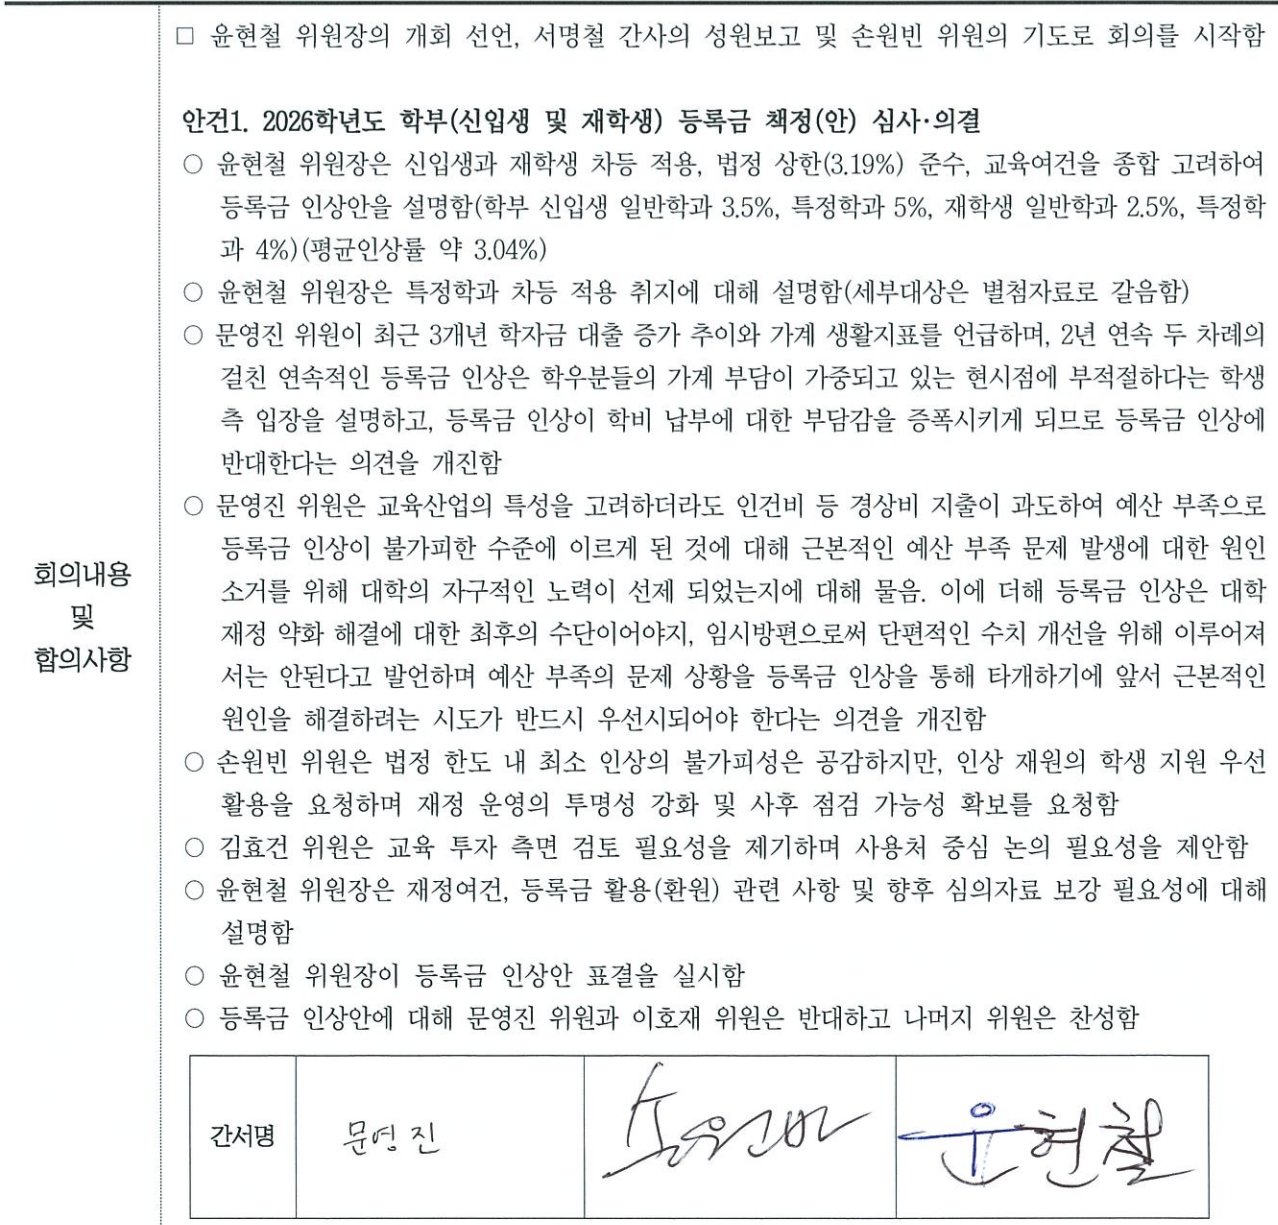 □ 윤현철 위원장의 개회 선언, 서명철 간사의 성원보고 및 손원빈 위원의 기도로 회의를 시작함
안건1. 2026학년도 학부(신입생 및 재학생) 등록금 책정(안) 심사·의결
○ 윤현철 위원장은 신입생과 재학생 차등 적용, 법정 상한(3.19%) 준수, 교육여건을 종합 고려하여
등록금 인상안을 설명함(학부 신입생 일반학과 3.5%, 특정학과 5%, 재학생 일반학과 2.5%, 특정학
과 4%)(평균인상률 약 3.04%)
○ 윤현철 위원장은 특정학과 차등 적용 취지에 대해 설명함(세부대상은 별첨자료로 갈음함)
○ 문영진 위원이 최근 3개년 학자금 대출 증가 추이와 가계 생활지표를 언급하며, 2년 연속 두 차례의
걸친 연속적인 등록금 인상은 학우분들의 가계 부담이 가중되고 있는 현시점에 부적절하다는 학생
측 입장을 설명하고, 등록금 인상이 학비 납부에 대한 부담감을 증폭시키게 되므로 등록금 인상에
반대한다는 의견을 개진함
○ 문영진 위원은 교육산업의 특성을 고려하더라도 인건비 등 경상비 지출이 과도하여 예산 부족으로
등록금 인상이 불가피한 수준에 이르게 된 것에 대해 근본적인 예산 부족 문제 발생에 대한 원인
소거를 위해 대학의 자구적인 노력이 선제 되었는지에 대해 물음. 이에 더해 등록금 인상은 대학
재정 약화 해결에 대한 최후의 수단이어야지, 임시방편으로써 단편적인 수치 개선을 위해 이루어져
서는 안된다고 발언하며 예산 부족의 문제 상황을 등록금 인상을 통해 타개하기에 앞서 근본적인
원인을 해결하려는 시도가 반드시 우선시되어야 한다는 의견을 개진함
○ 손원빈 위원은 법정 한도 내 최소 인상의 불가피성은 공감하지만, 인상 재원의 학생 지원 우선
활용을 요청하며 재정 운영의 투명성 강화 및 사후 점검 가능성 확보를 요청함
○ 김효건 위원은 교육 투자 측면 검토 필요성을 제기하며 사용처 중심 논의 필요성을 제안함
○ 윤현철 위원장은 재정여건, 등록금 활용(환원) 관련 사항 및 향후 심의자료 보강 필요성에 대해
설명함
○ 윤현철 위원장이 등록금 인상안 표결을 실시함
○ 등록금 인상안에 대해 문영진 위원과 이호재 위원은 반대하고 나머지 위원은 찬성함
회의내용
및
합의사항
간서명 문영진 손원빈 윤현철